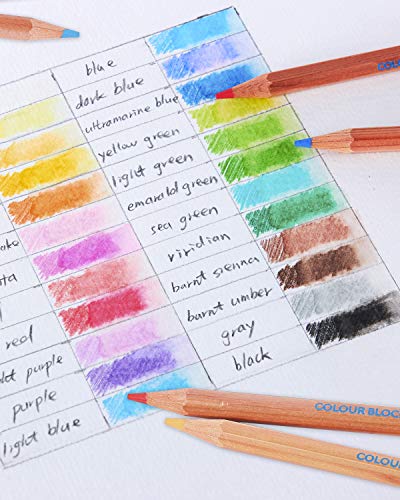 blue
dark blue
ultramarine blue
yellow green
light green
emarald green
sea green
viridian
burnt sienna
burnt umber
gray
black
red
purple
purple
light blue
COLOUR BLOC
COLOU